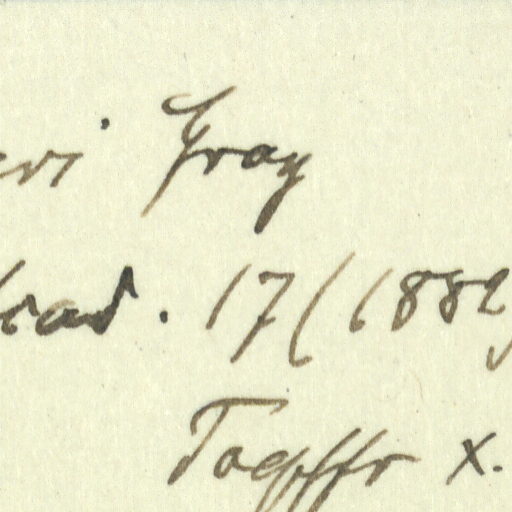 eri Gray
cad. 17 (1882)
Toepffr x.